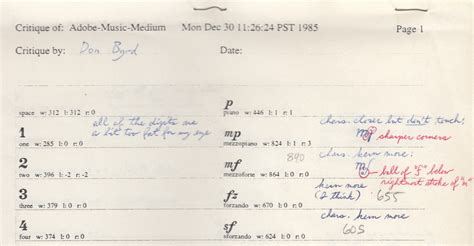 Critique of: Adobe-Music-Medium Mon Dec 30 11:26:24 PST 1985 Page 1
Critique by: Don Byrd Date:
space w: 312 l: 312 r: 0
all of the digits are
a bit too fat for my eye
1
one w: 285 l: 0 r: 0
2
two w: 396 l: -2 r: -2
3
three w: 379 l: 0 r: 0
4
four w: 374 l: 0 r: 0
p
piano w: 446 l: 1 r: 1
chars. closer but don't touch:
mp sharper corners
mp
mezzopiano w: 824 l: 1 r: 3
890
chars. kern more:
mf
mezzoforte w: 864 l: 0 r: 0
ball of "f" below
rightmost stroke of "m"
kern more
(I think) 655
fz
forzando w: 670 l: 0 r: 0
chars. kern more
605
sf
sforzando w: 640 l: 0 r: 0